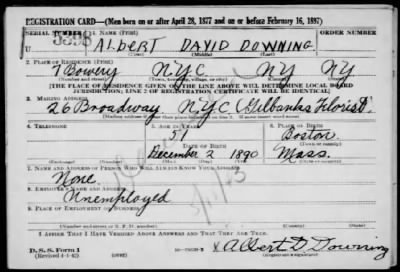 REGISTRATION CARD—(Men born on or after April 28, 1877 and on or before February 16, 1897)
SERIAL NUMBER 1. NAME (Print) ORDER NUMBER
U Albert DAVID DOWNING
(First) (Middle) (Last)
2. PLACE OF RESIDENCE (Print)
7 Bowery NYC NY NY
(Number and street) (Town, township, village, or city) (County) (State)
[THE PLACE OF RESIDENCE GIVEN ON THE LINE ABOVE WILL DETERMINE LOCAL BOARD
JURISDICTION; LINE 2 OF REGISTRATION CERTIFICATE WILL BE IDENTICAL]
3. MAILING ADDRESS
26 Broadway NYC (Gilbanks Florist)
4. TELEPHONE 5. AGE IN YEARS 6. PLACE OF BIRTH
51 Boston
DATE OF BIRTH
December 2 1890 Mass.
7. NAME AND ADDRESS OF PERSON WHO WILL ALWAYS KNOW YOUR ADDRESS
None
8. EMPLOYER'S NAME AND ADDRESS
Unemployed
9. PLACE OF EMPLOYMENT OR BUSINESS
(Number and street or R. F. D. number) (Town) (County) (State)
I AFFIRM THAT I HAVE VERIFIED ABOVE ANSWERS AND THAT THEY ARE TRUE.
D. S. S. Form 1
(Revised 4-1-42) (over) x Albert D Downing